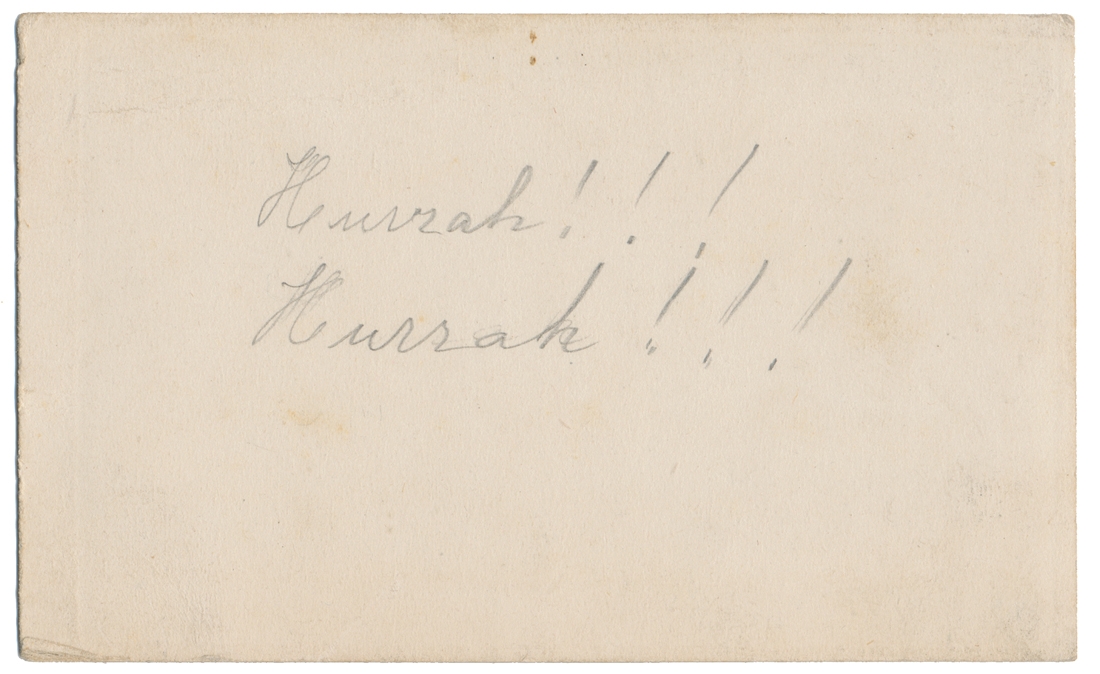 Hurrah!!!
Hurrah!!!